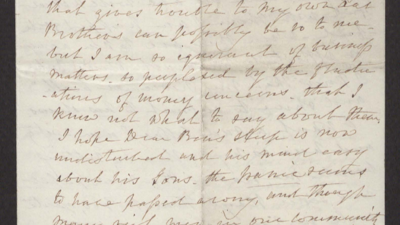 that gives trouble to my own dear
Brothers can possibly be so to me
but I am so ignorant of business
matters, so perplexed by the fluctu
ations of money concerns. that I
know not what to say about them
I hope Dear Ben's sleep is now
undisturbed and his mind easy
about his Sons. the seems
to have passed away, and though
many in our community